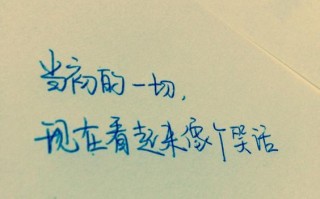 当初的一切，
现在看起来像个笑话